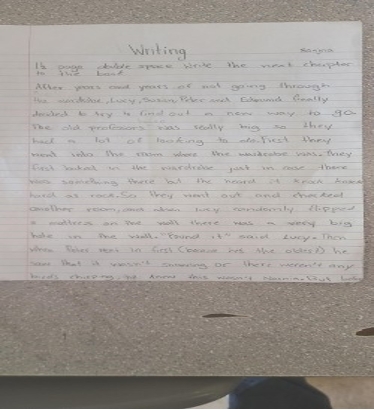 Writing
1½ page double space Write the next chapter
to the book
After years and years of not going through
the wardrobe, Lucy, Susan, Peter and Edmund finally
decided to try to find out a new way to go
The old professors was really big so they
had a lot of looking to do. First they
went into the room where the wardrobe was. They
first looked in the wardrobe just in case there
was something there but the board it
hard as rock. So they went out and checked
another room, and when Lucy randomly flipped
a mattress on the wall there was a very big
hole in the wall. "Found it" said Lucy. Then
when Peter went in first (because hes the oldest) he
saw that it wasn't snowing or there weren't any
birds chirping. He knew this wasn't Narnia. But